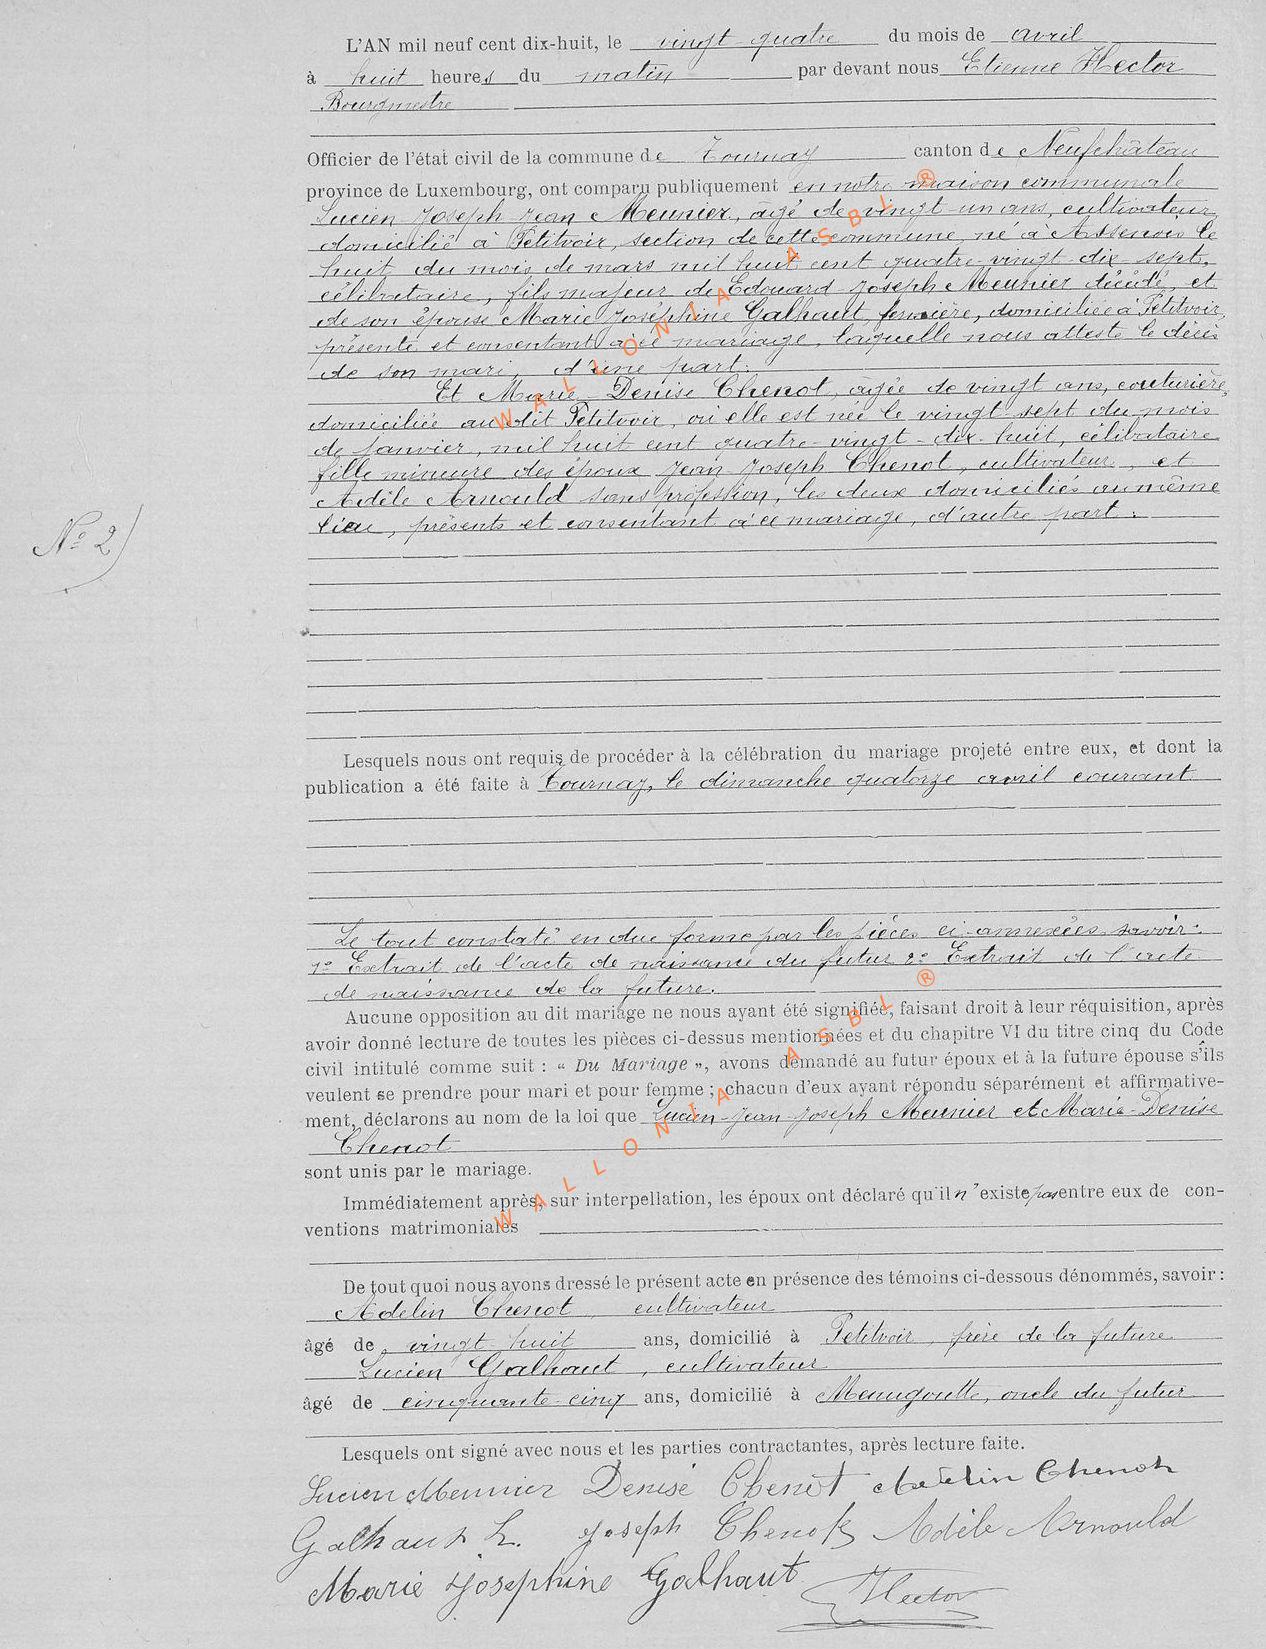 L'AN mil neuf cent dix-huit, le vingt quatre du mois de avril
à huit heures du matin par devant nous Etienne Hector
Bourgmestre
Officier de l'état civil de la commune de Tournay canton de Neufchâteau
province de Luxembourg, ont comparu publiquement en notre maison communale
Lucien-Joseph-Jean Meunier, âgé de vingt-un ans, cultivateur,
domicilié à Petitvoir, section de cette commune, né à Assenois le
huit du mois de mars mil huit cent quatre-vingt-dix-sept,
célibataire, fils majeur de Edouard-Joseph Meunier décédé, et
de son épouse Marie Joséphine Galhaut, fermière, domiciliée à Petitvoir,
présente et consentant à ce mariage, laquelle nous atteste le décès
de son mari, d'une part.
Et Marie-Denise Chenot, âgée de vingt ans, couturière,
domiciliée audit Petitvoir, où elle est née le vingt-sept du mois
de janvier, mil huit cent quatre-vingt-dix-huit, célibataire
fille mineure des époux Jean-Joseph Chenot, cultivateur, et
Adèle Arnould sans profession, les deux domiciliés au même
lieu, présents et consentant à ce mariage, d'autre part.
No 2)
Lesquels nous ont requis de procéder à la célébration du mariage projeté entre eux, et dont la
publication a été faite à Tournay, le dimanche quatorze avril courant
Le tout constaté en due forme par les pièces ci-annexées savoir:
1o Extrait de l'acte de naissance du futur 2o Extrait de l'acte
de naissance de la future.
Aucune opposition au dit mariage ne nous ayant été signifiée, faisant droit à leur réquisition, après
avoir donné lecture de toutes les pièces ci-dessus mentionnées et du chapitre VI du titre cinq du Code
civil intitulé comme suit : « Du Mariage », avons demandé au futur époux et à la future épouse s'ils
veulent se prendre pour mari et pour femme ; chacun d'eux ayant répondu séparément et affirmative-
ment, déclarons au nom de la loi que Lucien-Jean-Joseph Meunier et Marie-Denise
Chenot
sont unis par le mariage.
Immédiatement après, sur interpellation, les époux ont déclaré qu'il n'existe pas entre eux de con-
ventions matrimoniales
De tout quoi nous avons dressé le présent acte en présence des témoins ci-dessous dénommés, savoir :
Adelin Chenot, cultivateur
âgé de vingt huit ans, domicilié à Petitvoir, frère de la future
Lucien Galhaut, cultivateur
âgé de cinquante-cinq ans, domicilié à Menugoutte, oncle du futur
Lesquels ont signé avec nous et les parties contractantes, après lecture faite.
Lucien Meunier Denise Chenot Adelin Chenot
Galhaut L. Joseph Chenot Adèle Arnould
Marie Josephine Galhaut Hector
WALLONIA ASBL ®
WALLONIA ASBL ®